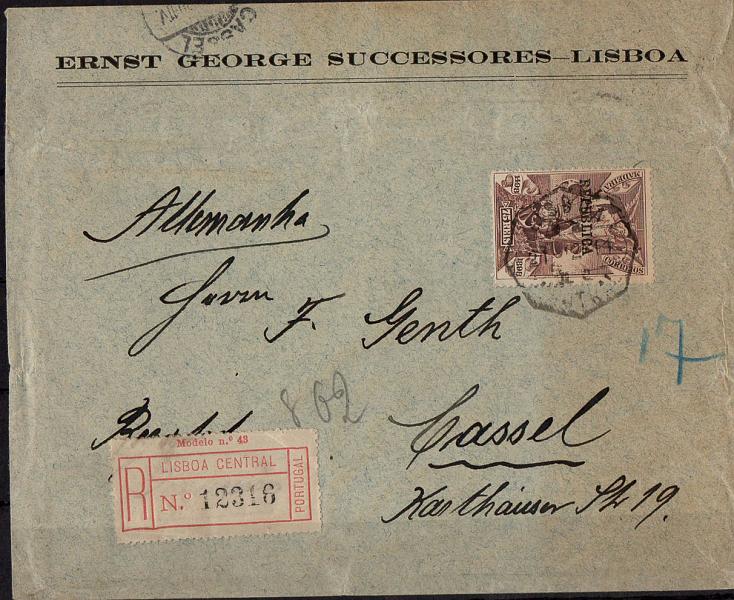 CASSEL
ERNST GEORGE SUCCESSORES–LISBOA
MADEIRA
1498 1898
REPUBLICA
75 REIS
CORREIOS
Allemanha
Herrn F. Genth
17
862
Cassel
Karthäuser Str. 19.
Modelo n.º 43
R
LISBOA CENTRAL
N.º 12316
PORTUGAL